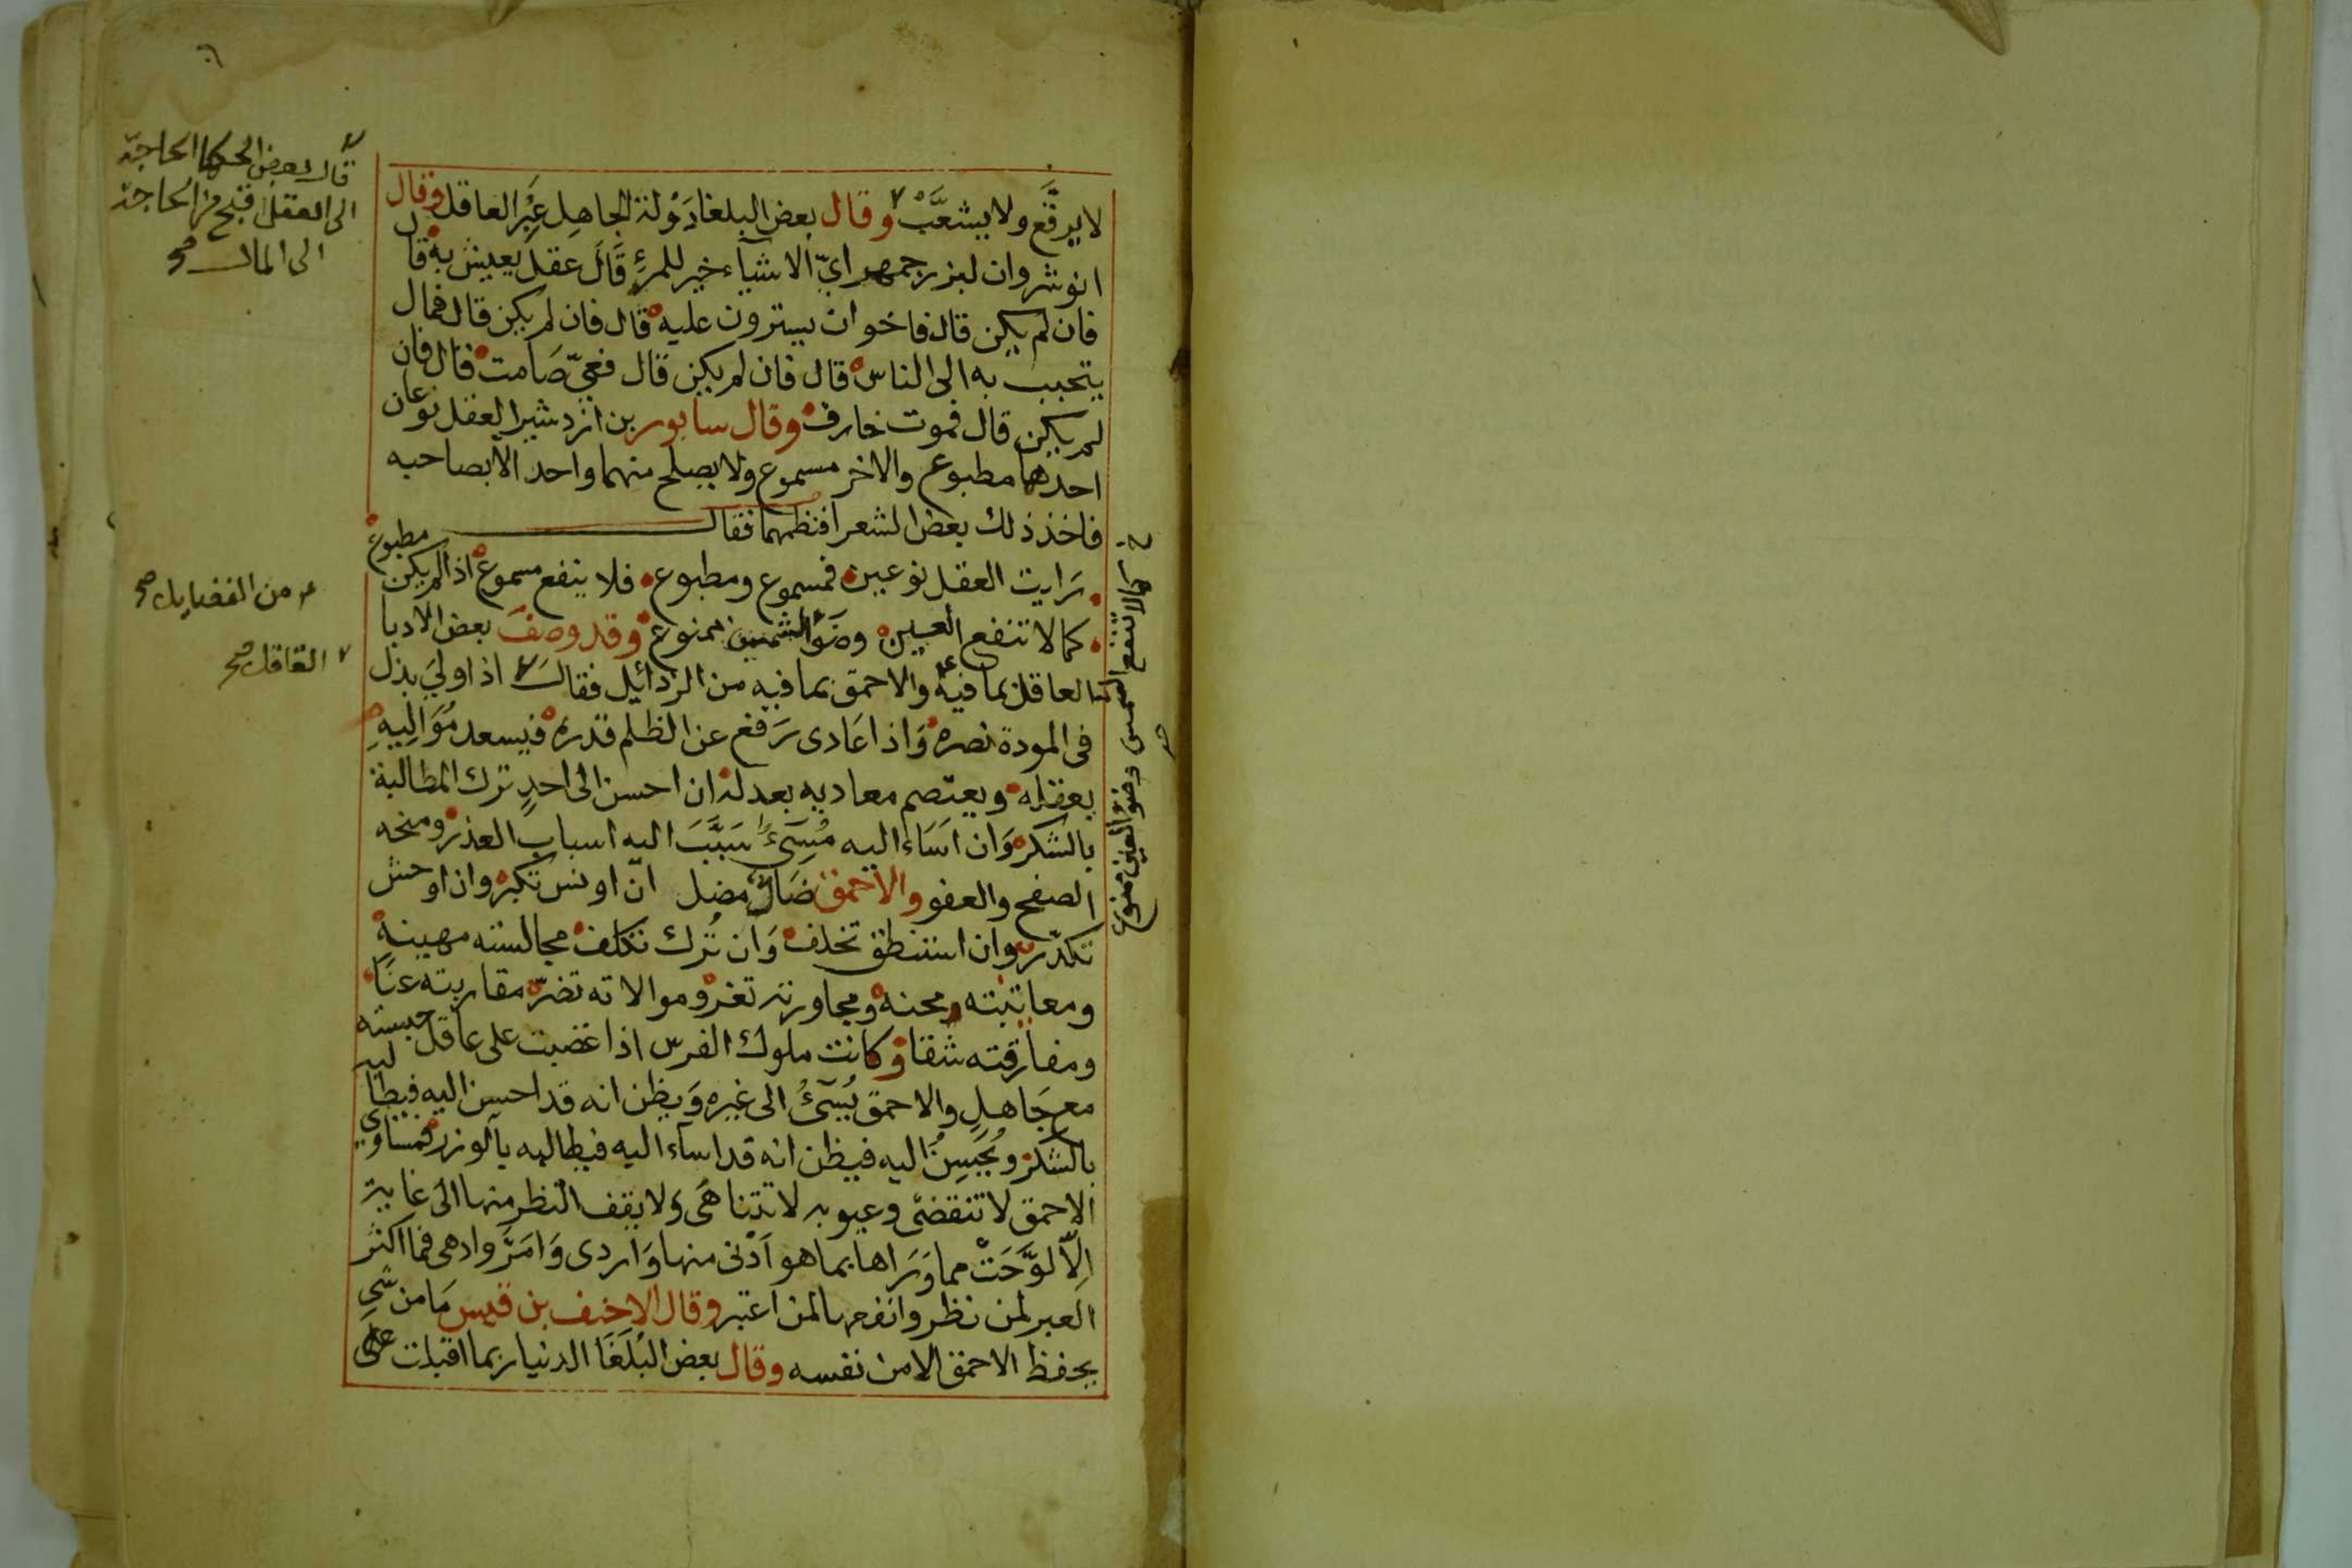 ٦
لا يرقّع ولا يشعّب وقال بعض البلغا دَوْلة الجاهل عِبَر العاقل وقال
انوشروان لبزرجمهر ايّ الاشيآء خير للمرءِ قَالَ عقل يعيش به قال
فان لم يكن قال فاخوان يسترون عليه قال فان لم يكن قال فمال
يتحبب به الى الناس قال فان لم يكن قال فعيّ صَامت قال فان
لم يكن قال فموت جارف وقال سابور بن ازدشير العقل نوعان
احدهما مطبوع والاخر مسموع ولا يصلح منهما واحد الا بصاحبه
فاخذ ذلك بعض الشعرا فنظمهما فقال
رايت العقل نوعين فمسموع ومطبوع فلا ينفع مسموع اذا لم يكن مطبوع
كما لا تنفع العين وضَوْالشمس ممنوع وقد وصَفَ بعض الادبا
العاقل بما فيه والاحمق بما فيه من الرذائيل فقال اذا وليَ بذل
فى المودة نصره وَاذا عَادى رَفع عن الظلم قدره فيسعد مُوَالِيهِ
بعقله ويعتصم معاديه بعدله ان احسن الى احدٍ ترك المطالبة
بالشكر وَان اسَاء اليه مُسِىءٌ سَبَّبَ اليه اسباب العذر ومنحه
الصفح والعفو والاحمق ضَالّ مضل انّ اونس تكبر وان اوحش
تكدّر وان استنطق تخلف وَان تُرك تكلف مجالسته مهينة
ومعاتبته محنه ومجاورته تغر وموالاته تضرّ مقاربته عنَا
ومفارقته شقا وكانت ملوك الفرس اذا غضبت على عاقل حبسته
مع جَاهلٍ والاحمق يُسىٓءُ الى غيره وَيظن انه قد احسن اليه فيطالبه
بالشكر ويُحسِنُ اليه فيظن انه قد اساء اليه فيطالبه بالوزر فمساوي
الاحمق لا تنقضى وعيوبه لا تتناهَى ولا يقف النظر منها الى غاية
اِلّا لوَّحَتْ مما وَرَاها بما هو اَدْنى منها وَاردى وَامَرَّ وادهى فما اكثر
العبر لمن نظر وانفعها لمن اعتبر وقال الاحنف بن قيس مَا من شى
يحفظ الاحمق الا من نفسه وقال بعض البُلَغَا الدنيا ربما اقبلت على
قال بعض الحكما الحاجة
الى العقل اقبح من الحاجة
الى المال صح
من الفضايل صح
العاقل صح
كما لا تنفع الشمس وضو العين ممنوع